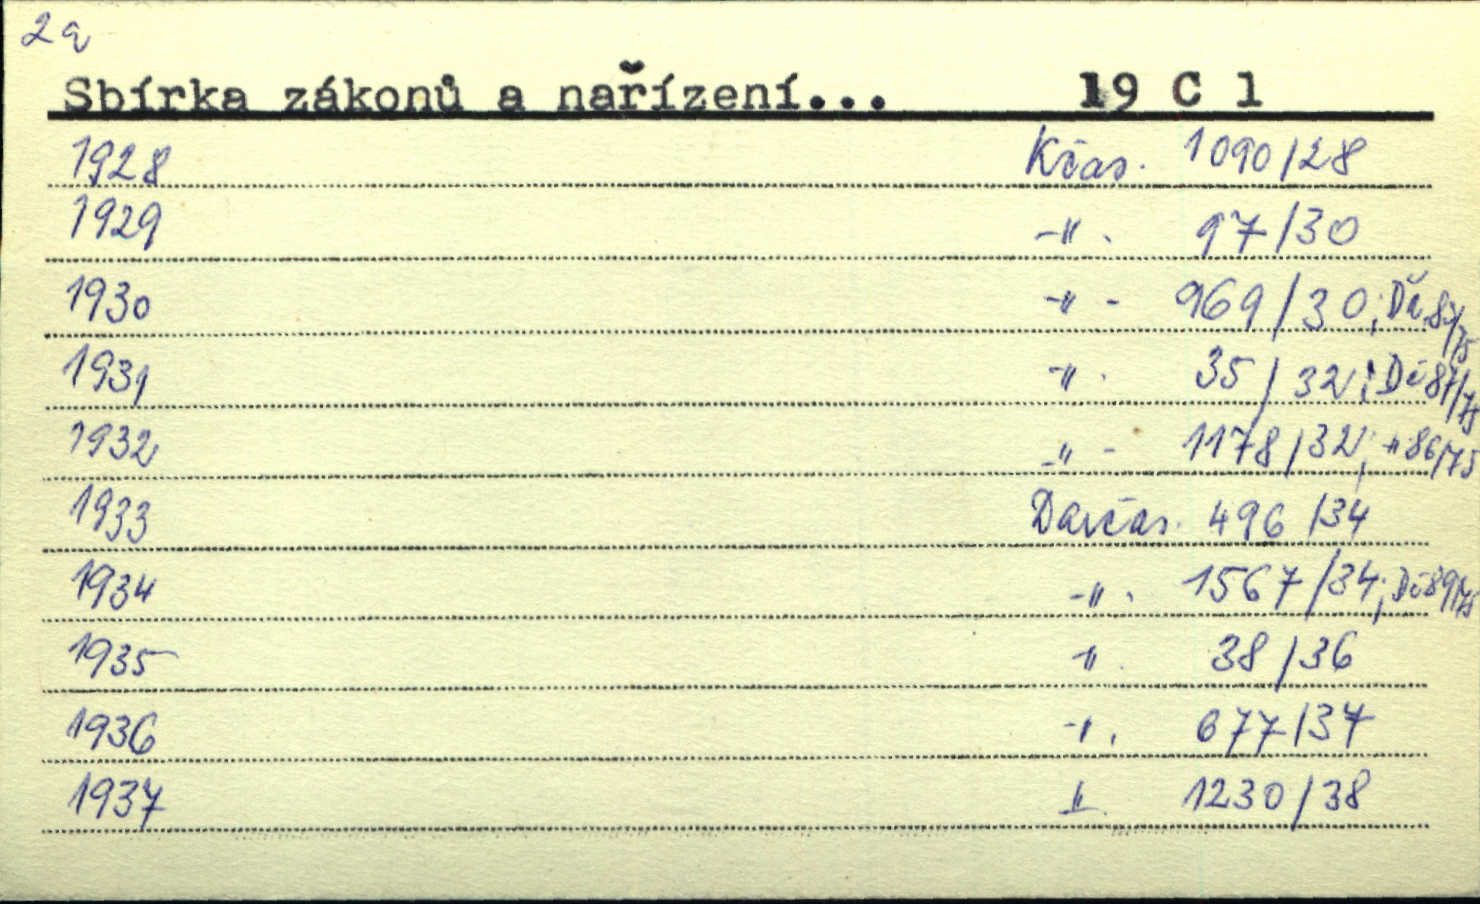 2a
Sbírka zákonů a nařízení... 19 C 1
1928 Kčas. 1090/28
1929 -"- 97/30
1930 -"- 969/30; Dč. 87/75
1931 -"- 35/32; Dč 87/75
1932 -"- 1178/32; " 86/75
1933 Darčas. 496/34
1934 -"- 1567/34; Dč 89/75
1935 -"- 38/36
1936 -"- 677/37
1937 -"- 1230/38